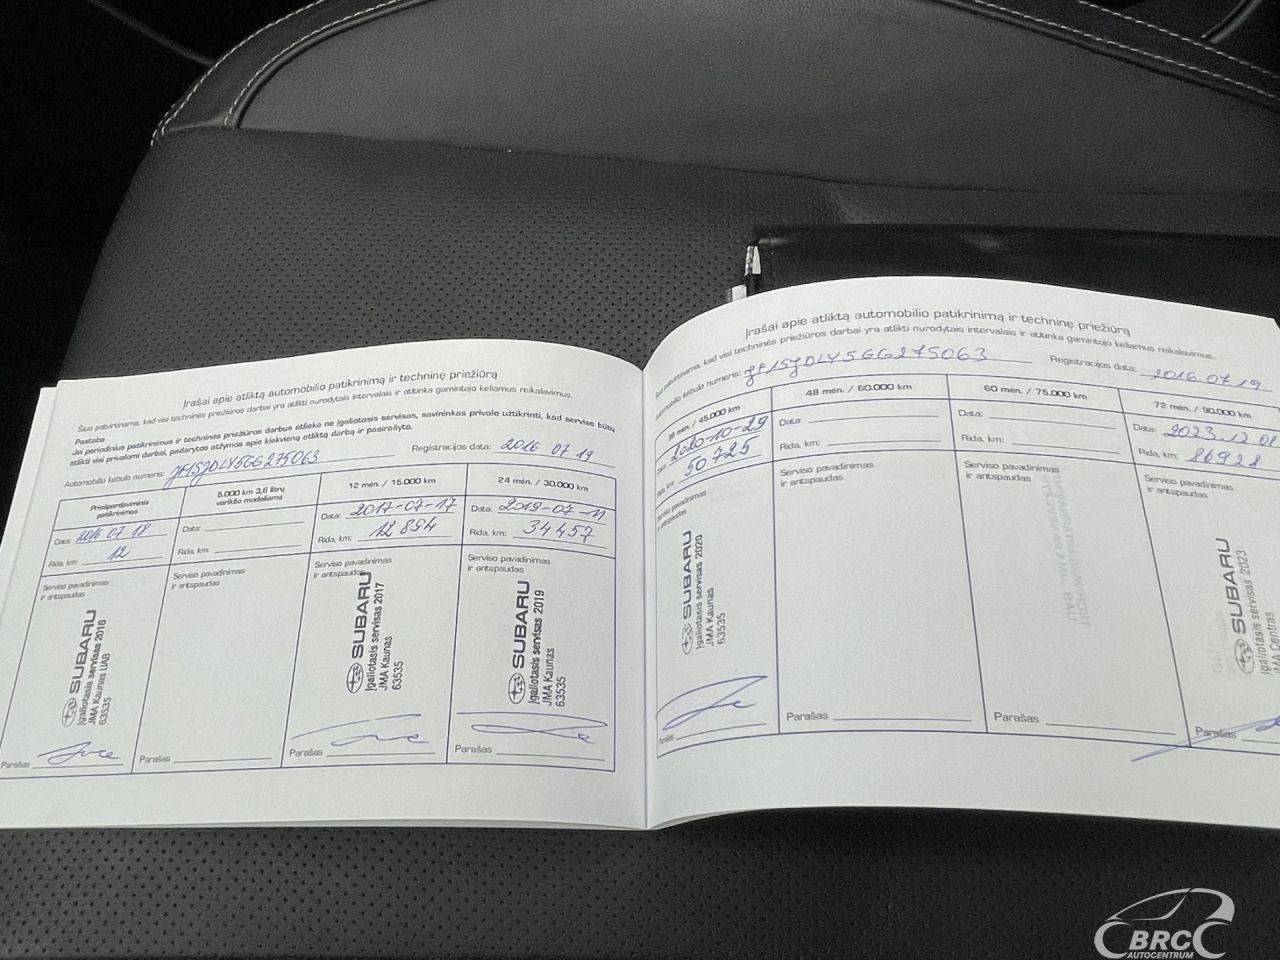 Įrašai apie atliktą automobilio patikrinimą ir techninę priežiūrą
Šiuo patvirtinama, kad visi techninės priežiūros darbai yra atlikti nurodytais intervalais ir atitinka gamintojo keliamus reikalavimus.
Pastaba
Jei periodinius patikrinimus ir techninės priežiūros darbus atlieka ne įgaliotasis servisas, savininkas privalo užtikrinti, kad servise būtų
atlikti visi privalomi darbai, padarytos atžymos apie kiekvieną atliktą darbą ir pasirašyta.
Automobilio kėbulo numeris: JF1SJDLY5GG275063 Registracijos data: 2016 07 19
Priešpardaviminis patikrinimas
Data: 2016 07 18
Rida, km: 12
Serviso pavadinimas ir antspaudas
SUBARU
Įgaliotasis servisas 2016
JMA Kaunas UAB
63535
Parašas
5.000 km 3,6 litrų variklio modeliams
Data:
Rida, km:
Serviso pavadinimas ir antspaudas
Parašas
12 mėn. / 15.000 km
Data: 2017-07-17
Rida, km: 12 894
Serviso pavadinimas ir antspaudas
SUBARU
Įgaliotasis servisas 2017
JMA Kaunas
63535
Parašas
24 mėn. / 30.000 km
Data: 2019-07-11
Rida, km: 34457
Serviso pavadinimas ir antspaudas
SUBARU
Įgaliotasis servisas 2019
JMA Kaunas
63535
Parašas
Įrašai apie atliktą automobilio patikrinimą ir techninę priežiūrą
Šiuo patvirtinama, kad visi techninės priežiūros darbai yra atlikti nurodytais intervalais ir atitinka gamintojo keliamus reikalavimus.
Automobilio kėbulo numeris: JF1SJDLY5GG275063 Registracijos data: 2016.07.19
36 mėn. / 45.000 km
Data: 2020-10-29
Rida, km: 50725
Serviso pavadinimas ir antspaudas
SUBARU
Įgaliotasis servisas 2020
JMA Kaunas
63535
Parašas
48 mėn. / 60.000 km
Data:
Rida, km:
Serviso pavadinimas ir antspaudas
Parašas
60 mėn. / 75.000 km
Data:
Rida, km:
Serviso pavadinimas ir antspaudas
Parašas
72 mėn. / 90.000 km
Data: 2023.12.08
Rida, km: 86928
Serviso pavadinimas ir antspaudas
SUBARU
Įgaliotasis servisas 2023
JMA Centras
Parašas
BRC
AUTOCENTRUM